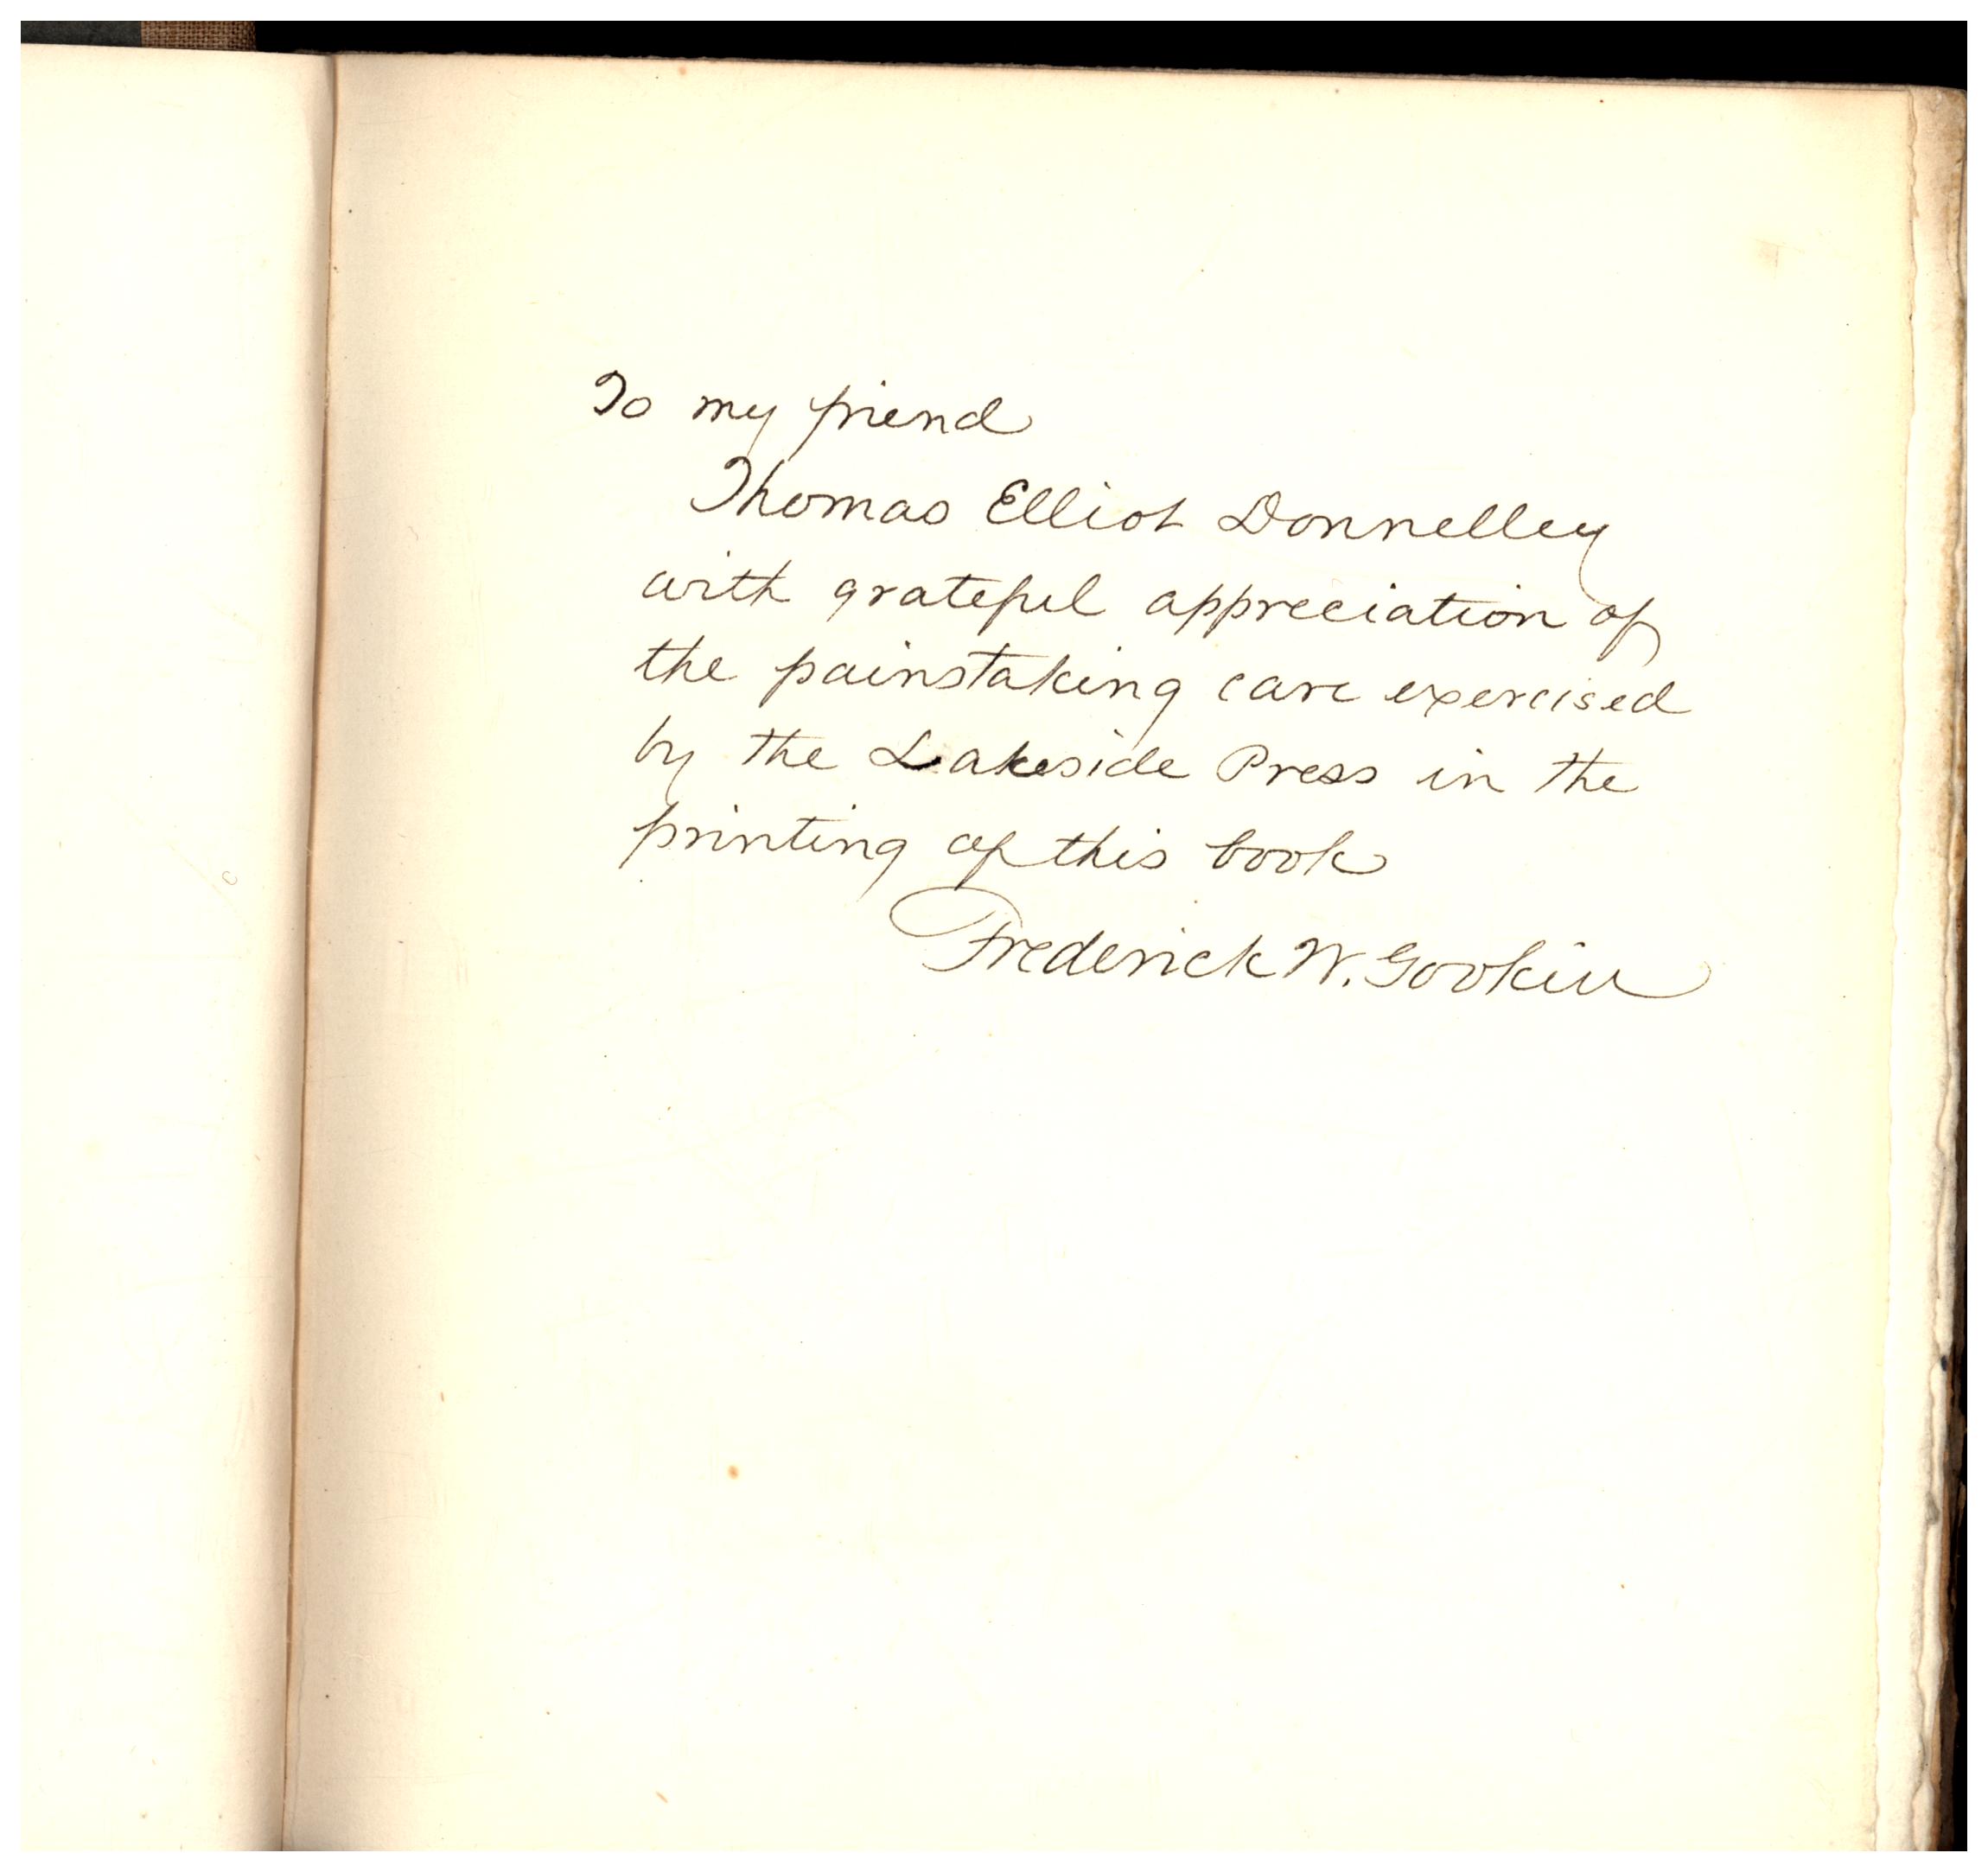 To my friend
Thomas Elliot Donnelley
with grateful appreciation of
the painstaking care exercised
by the Lakeside Press in the
printing of this book
Frederick W. Gookin